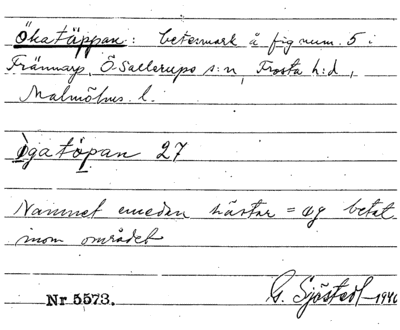 Ökatäppan: betesmark å fig num. 5 i
Frännarp, Ö Sallerups s:n, Frosta h:d,
Malmöhus l.
øgatöpan 27
Namnet emedan hästar = øg betat
inom området
Nr 5573. G. Sjöstedt 1940